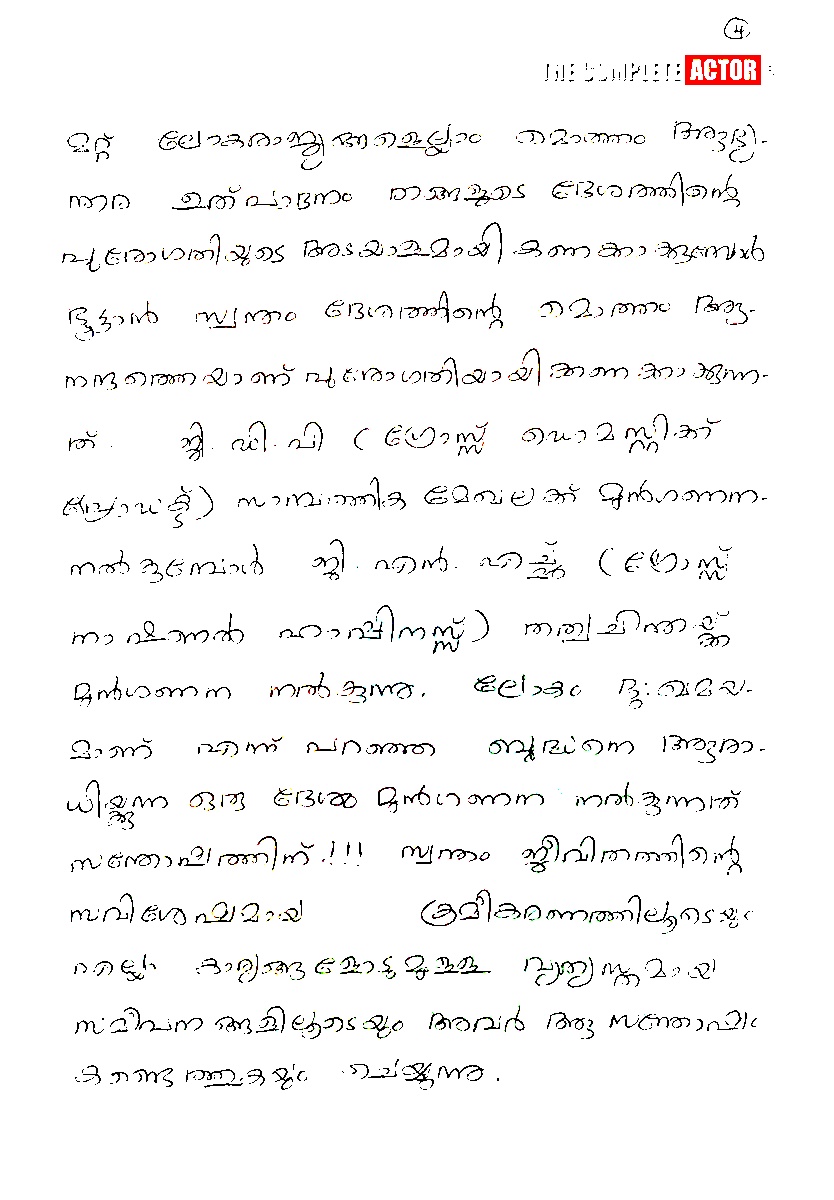 4
THE COMPLETE ACTOR
മറ്റ് ലോകരാജ്യങ്ങളെല്ലാം മൊത്തം ആഭ്യ-
ന്തര ഉത്പാദനം തങ്ങളുടെ ദേശത്തിന്റെ
പുരോഗതിയുടെ അടയാളമായി കണക്കാക്കുമ്പോൾ
ഭൂട്ടാൻ സ്വന്തം ദേശത്തിന്റെ മൊത്തം ആ-
നന്ദത്തെയാണ് പുരോഗതിയായി കണക്കാക്കുന്ന-
ത്. ജി.ഡി.പി (ഗ്രോസ്സ് ഡൊമസ്റ്റിക്
പ്രോഡക്ട്) സാമ്പത്തിക മേഖലക്ക് മുൻഗണന-
നൽകുമ്പോൾ ജി.എൻ.എച്ച് (ഗ്രോസ്സ്
നാഷണൽ ഹാപ്പിനസ്സ്) തത്ത്വചിന്തയ്ക്ക്
മുൻഗണന നൽകുന്നു. ലോകം ദു:ഖമയ-
മാണ് എന്ന് പറഞ്ഞ ബുദ്ധനെ ആരാ-
ധിയ്ക്കുന്ന ഒരു ദേശം മുൻഗണന നൽകുന്നത്
സന്തോഷത്തിന്.!!! സ്വന്തം ജീവിതത്തിന്റെ
സവിശേഷമായ ക്രമീകരണത്തിലൂടെയും
എല്ലാ കാര്യങ്ങളോടുമുള്ള വ്യത്യസ്തമായ
സമീപനങ്ങളിലൂടെയും അവർ ആ സന്തോഷം
കണ്ടെത്തുകയും ചെയ്യുന്നു.